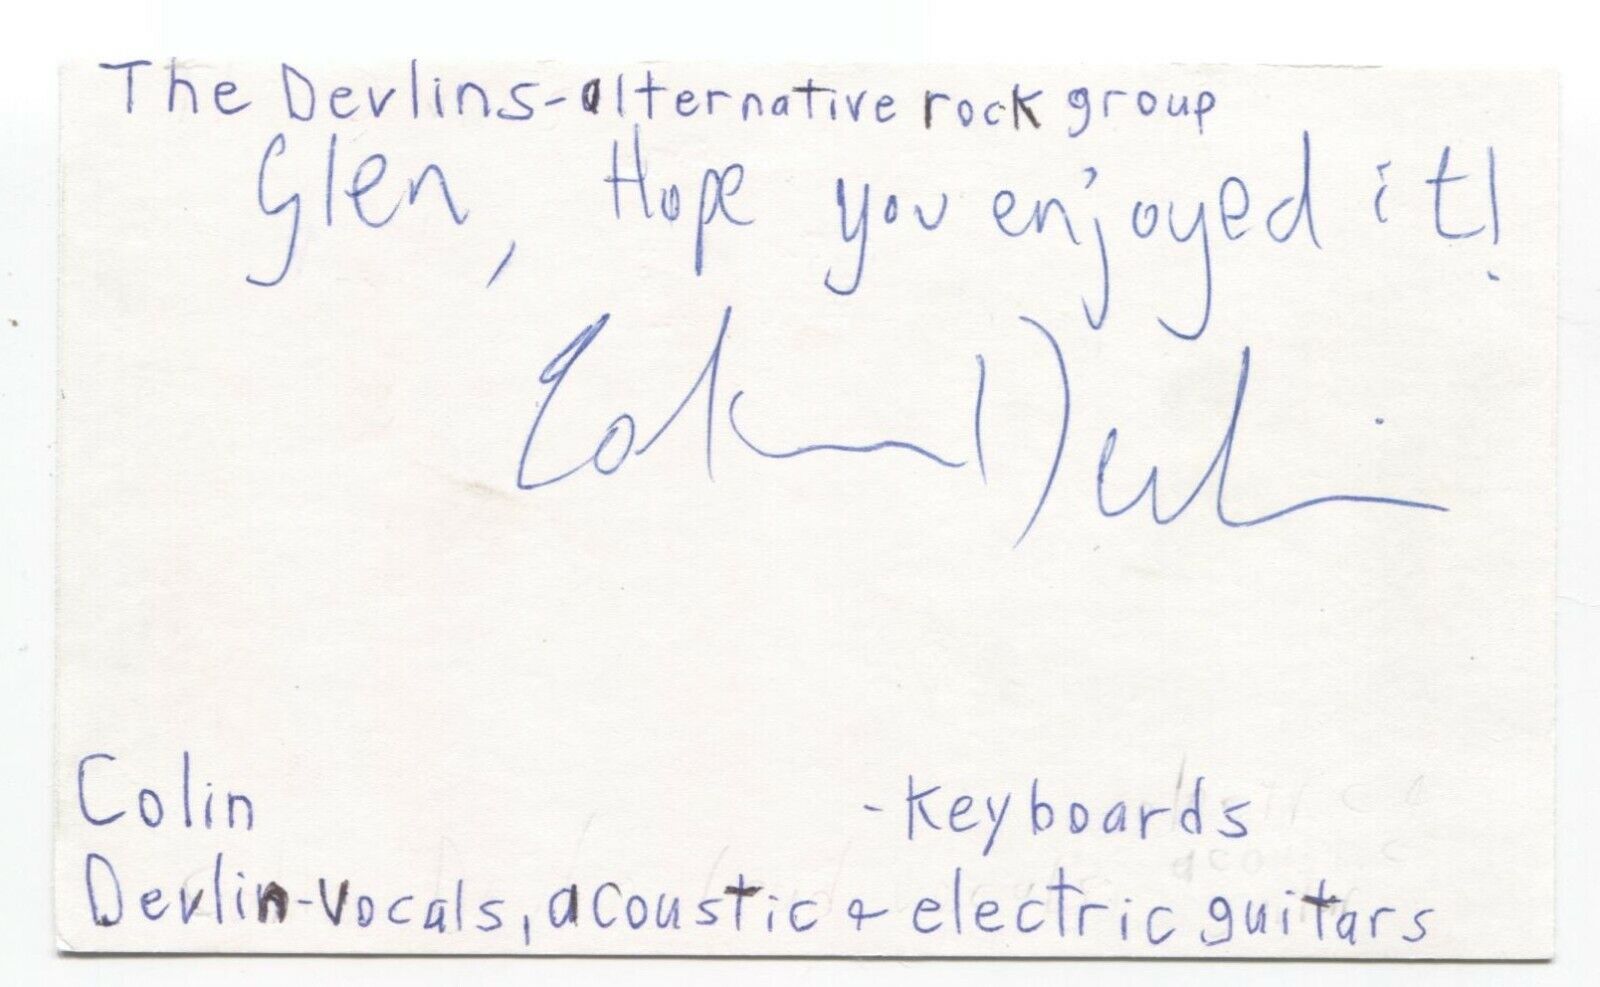 The Devlins-alternative rock group
Glen, Hope you enjoyed it!
Colin Devlin
Colin
-keyboards
Devlin-Vocals, acoustic & electric guitars